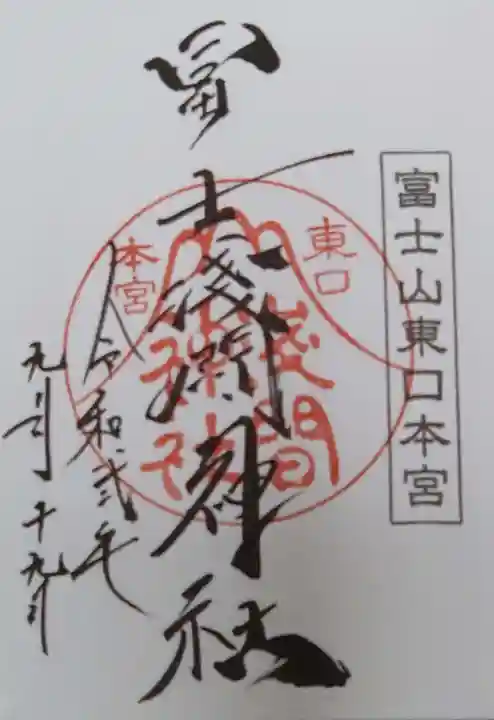 富士山東口本宮
冨士浅間神社
東口
本宮
浅間
神社
令和弐年
九月十九日